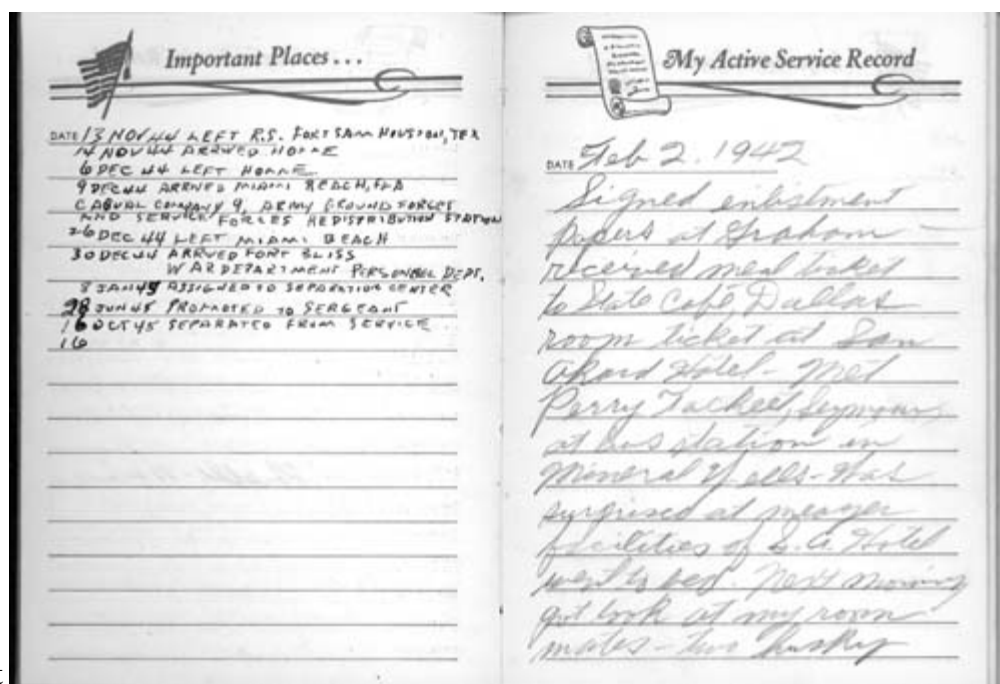 Important Places...
DATE 13 NOV 44 LEFT R.S. FORT SAM HOUSTON, TEX
14 NOV 44 ARRIVED HOME
6 DEC 44 LEFT HOME
9 DEC 44 ARRIVED MIAMI BEACH, FLA
CASUAL COMPANY 9, ARMY GROUND FORCES
AND SERVICE FORCES REDISTRIBUTION STATION
26 DEC 44 LEFT MIAMI BEACH
30 DEC 44 ARRIVED FORT BLISS
WAR DEPARTMENT PERSONNEL DEPT,
8 JAN 45 ASSIGNED TO SEPARATION CENTER
28 JUN 45 PROMOTED TO SERGEANT
16 OCT 45 SEPARATED FROM SERVICE
16
My Active Service Record
DATE Feb 2. 1942
Signed enlistment
papers at Graham -
received meal ticket
to State Cafe, Dallas
room ticket at San
Akard Hotel - Met
Perry Seymour,
at bus station in
Mineral Wells - Was
surprised at meager
facilities of S.A. Hotel
went to bed. Next morning
got look at my room
mates - two husky